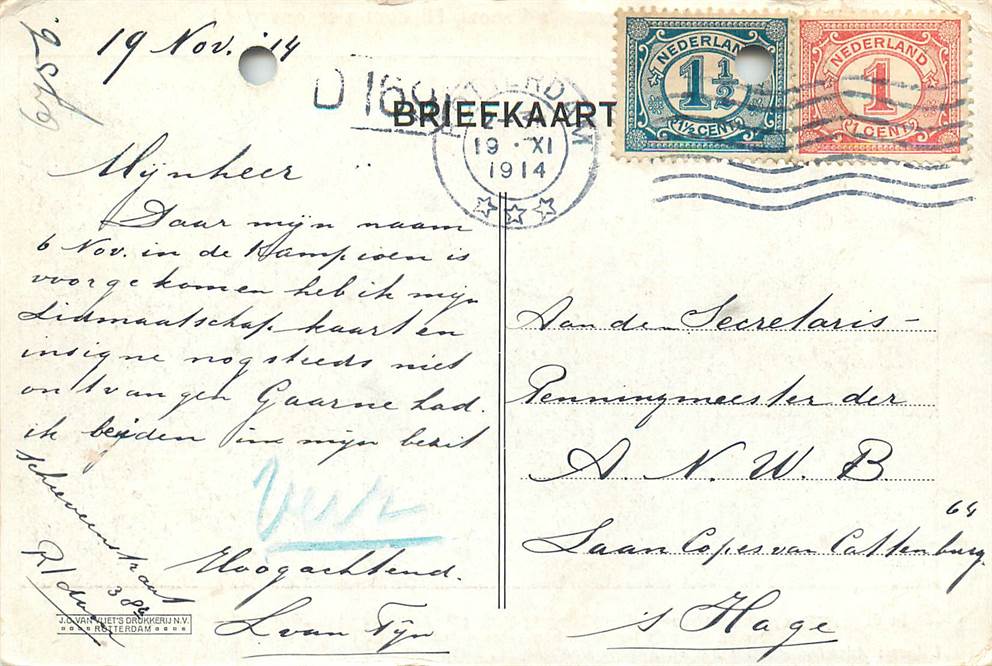 19 Nov. '14
D 16
BRIEFKAART
19 · XI
1914
NEDERLAND
1½
1½ CENT
NEDERLAND
1
1 CENT
Mijnheer
Daar mijn naam
6 Nov. in de Kampioen is
voorgekomen heb ik mijn
Lidmaatschap kaart en
insigne nog steeds niet
ontvangen Gaarne had
ik beijden in mijn bezit
Hoogachtend.
L. van Tijn
Schievenstraat
38a
R/dam
Aan de Secretaris-
Penningmeester der
A. N. W. B.
64
Laan Copes van Cattenburg.
's Hage
J.C. VAN VLIET'S DRUKKERIJ N.V.
ROTTERDAM